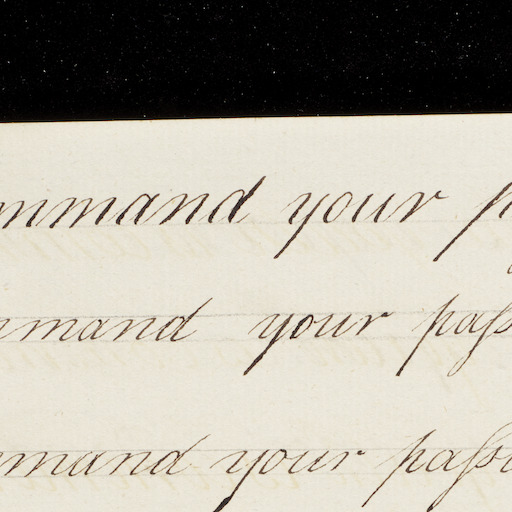 mmand your p
mmand your paſs
mmand your paſsi